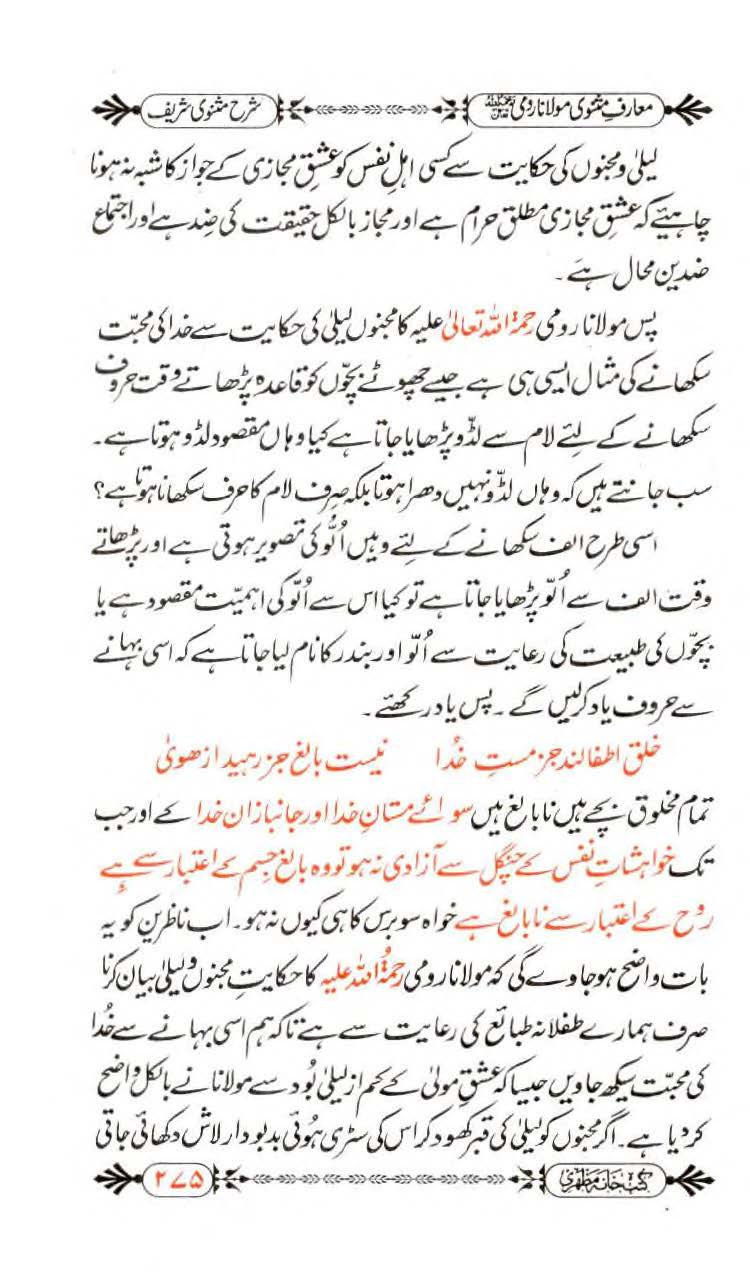 معارفِ مثنوی مولانا رومی رحمۃ اللہ علیہ
شرح مثنوی شریف
لیلیٰ و مجنوں کی حکایت سے کسی اہلِ نفس کو عشقِ مجازی کے جواز کا شبہ نہ ہونا
چاہیئے کہ عشقِ مجازی مطلق حرام ہے اور مجاز بالکل حقیقت کی ضِد ہے اور اجتماع
ضدین محال ہے۔
پس مولانا رومی رحمۃ اللہ تعالیٰ علیہ کا مجنوں لیلیٰ کی حکایت سے خدا کی محبّت
سکھانے کی مثال ایسی ہی ہے جیسے چھوٹے بچّوں کو قاعدہ پڑھاتے وقت حروف
سکھانے کے لئے لام سے لڈّو پڑھایا جاتا ہے کیا وہاں مقصود لڈو ہوتا ہے۔
سب جانتے ہیں کہ وہاں لڈّو نہیں دھرا ہوتا بلکہ صِرف لام کا حرف سکھانا ہوتا ہے؟
اسی طرح الف سکھانے کے لئے وہیں اُلُّو کی تصویر ہوتی ہے اور پڑھاتے
وقت الف سے اُلّو پڑھایا جاتا ہے تو کیا اس سے اُلّو کی اہمیّت مقصود ہے یا
بچّوں کی طبیعت کی رعایت سے اُلّو اور بندر کا نام لیا جاتا ہے کہ اسی بہانے
سے حروف یاد کرلیں گے۔ پس یاد رکھئے۔
خلق اطفالند جز مستِ خُدا نیست بالغ جز رہید از ھویٰ
تمام مخلوق بچے ہیں نابالغ ہیں سوائے مستانِ خدا اور جانبازانِ خدا کے اور جب
تک خواہشاتِ نفس کے چنگل سے آزادی نہ ہو تو وہ بالغ جِسم کے اعتبار سے ہے
روح کے اعتبار سے نابالغ ہے خواہ سو برس کا ہی کیوں نہ ہو۔ اب ناظرین کو یہ
بات واضح ہوجاوے گی کہ مولانا رومی رحمۃُ اللہ علیہ کا حکایتِ مجنوں و لیلیٰ بیان کرنا
صرف ہمارے طفلانہ طبائع کی رعایت سے ہے تاکہ ہم اسی بہانے سے خُدا
کی محبّت سیکھ جاویں جیسا کہ عشقِ مولیٰ کے کم از لیلیٰ بُود سے مولانا نے بالکل واضح
کر دیا ہے۔ اگر مجنوں کو لیلیٰ کی قبر کھود کر اس کی سٹری ہُوئی بدبودار لاش دکھائی جاتی
کتب خانہ مظہری
۲۷۵